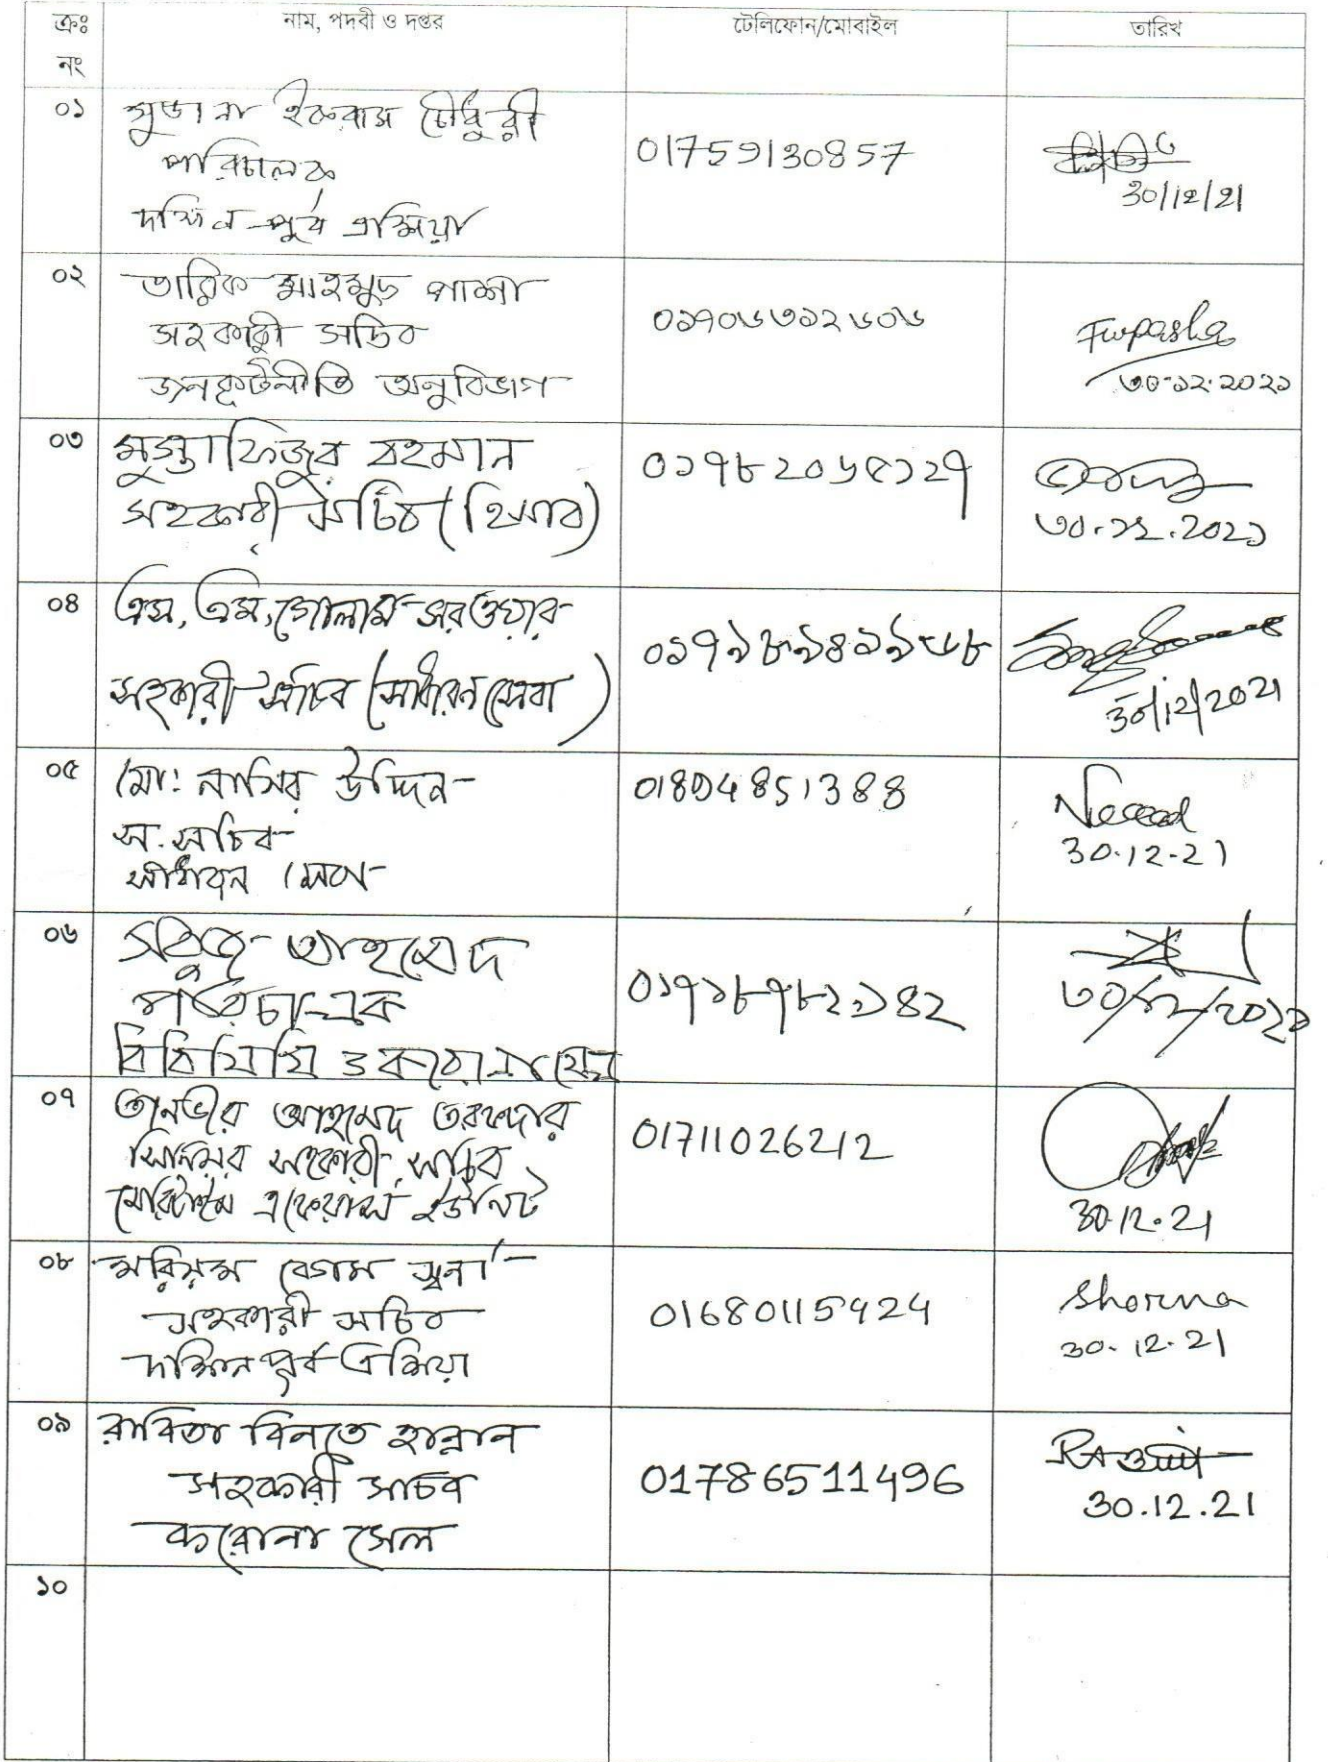 ক্রঃ নং
নাম, পদবী ও দপ্তর
টেলিফোন/মোবাইল
তারিখ
০১
চৌধুরী
পরিচালক
দক্ষিন-পূর্ব এশিয়া
01759130857
30/12/21
০২
তারিক মাহমুদ পাশা
সহকারী সচিব
জনকূটনীতি অনুবিভাগ
০১৭০৬৩১২৬০৬
Fwpasha
৩০-১২-২০২১
০৩
মুস্তাফিজুর রহমান
সহকারী সচিব (হিসাব)
০১৭৮২০৬৫১২৭
৩০.১২.২০২১
০৪
এস, এম, গোলাম সরওয়ার
সহকারী সচিব (সাধারন সেবা)
30/12/2021
০৫
মো: নাসির উদ্দিন
স. সচিব
সাধারন সেবা
30.12.21
০৬
সবুজ আহমেদ
পরিচালক
০১৭১৮৭৮২১৪২
৩০/১২/২০২১
০৭
তানভীর আহমেদ তরফদার
সিনিয়র সহকারী সচিব
মেরিটাইম এফেয়ার্স ইউনিট
01711026212
30.12.21
০৮
মরিয়ম বেগম স্বর্না
সহকারী সচিব
দক্ষিন পূর্ব এশিয়া
01680115924
Shorna
30.12.21
০৯
রাবিতা বিনতে হান্নান
সহকারী সচিব
করোনা সেল
01786511496
30.12.21
১০